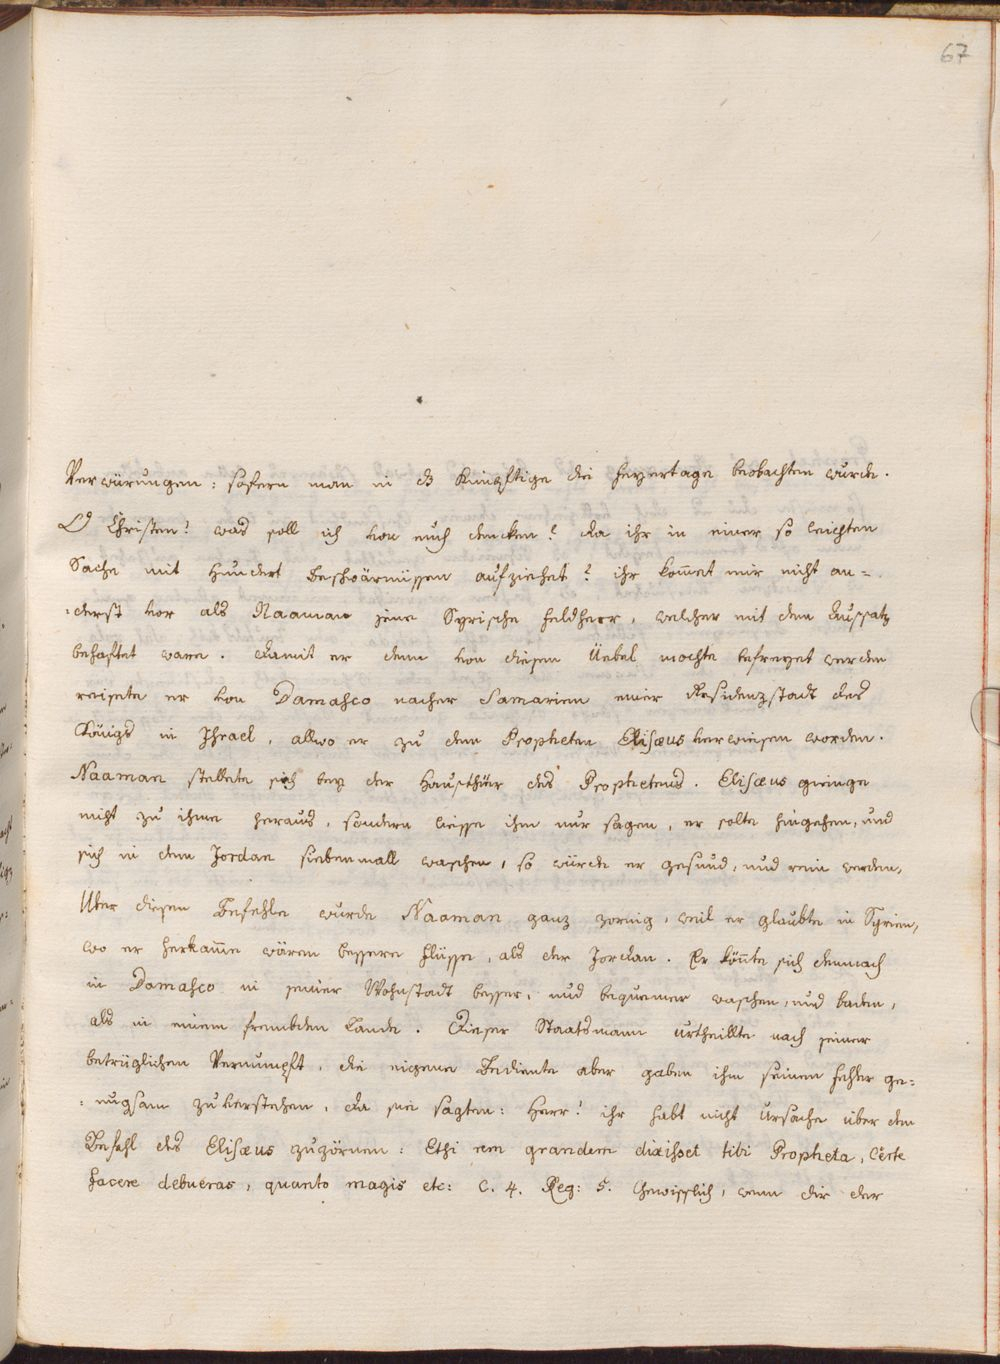 67
Verwürungen: sofern man in das Künfftige die feyertage beobachten wurde.
O Christen! was soll ich von euch dencken? da ihr in einer so leichten
Sache mit hundert Beschwärnüssen aufziehet? ihr kom̄et mir nicht an=
=derst vor als Naaman jene Syrische feldherr, welcher mit dem Aussatz
behaftet ware. damit er denn von diesem Üebel mochte befreyet werden
reisete er von Damasco nacher Samarien einer Residenzstadt des
Königs in Jsrael, allwo er zu dem Propheten Elisæus verwiesen worden.
Naaman stellete sich bey der Hausthür des Prophetens. Elisæus gienge
nicht zu ihme heraus, sondern liesse ihm nur sagen, er solte hingehen, und
sich in dem Jordan siebenmall waschen, so würde er gesund, und rein werden,
Uber diesen Befehle wurde Naaman ganz zornig, weil er glaubte in Syrien,
wo er herkam̄e wären bessere flüsse, als der Jordan. Er kön̄te sich demnach
in Damasco in seiner Wohnstadt besser, und bequemer waschen, und baden,
als in einem frembden Lande. Dieser Staatsmann urtheillte nach seiner
betrüglichen Vernumpft, die eigene Bediente aber gaben ihm seinen fehler ge=
=nugsam zuverstehen, da sie sagten: Herr! ihr habt nicht ursache über den
Befehl des Elisæus zuzörnen: Ethi rem grandem dixisset tibi Propheta, certe
facere debueras, quanto magis etc: C. 4. Reg: 5. Gewisslich, wenn dir der